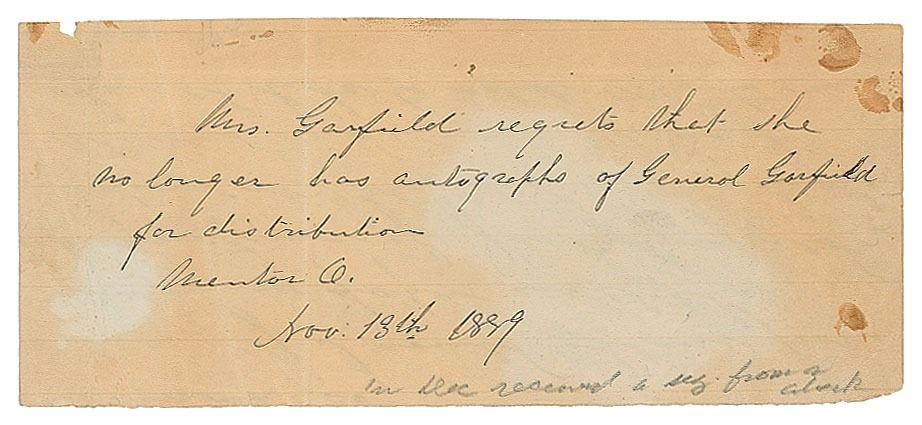 Mrs. Garfield regrets that she
no longer has autographs of General Garfield
for distribution
Mentor O.
Nov. 13th 1889
In Dec received a sig. from a
check